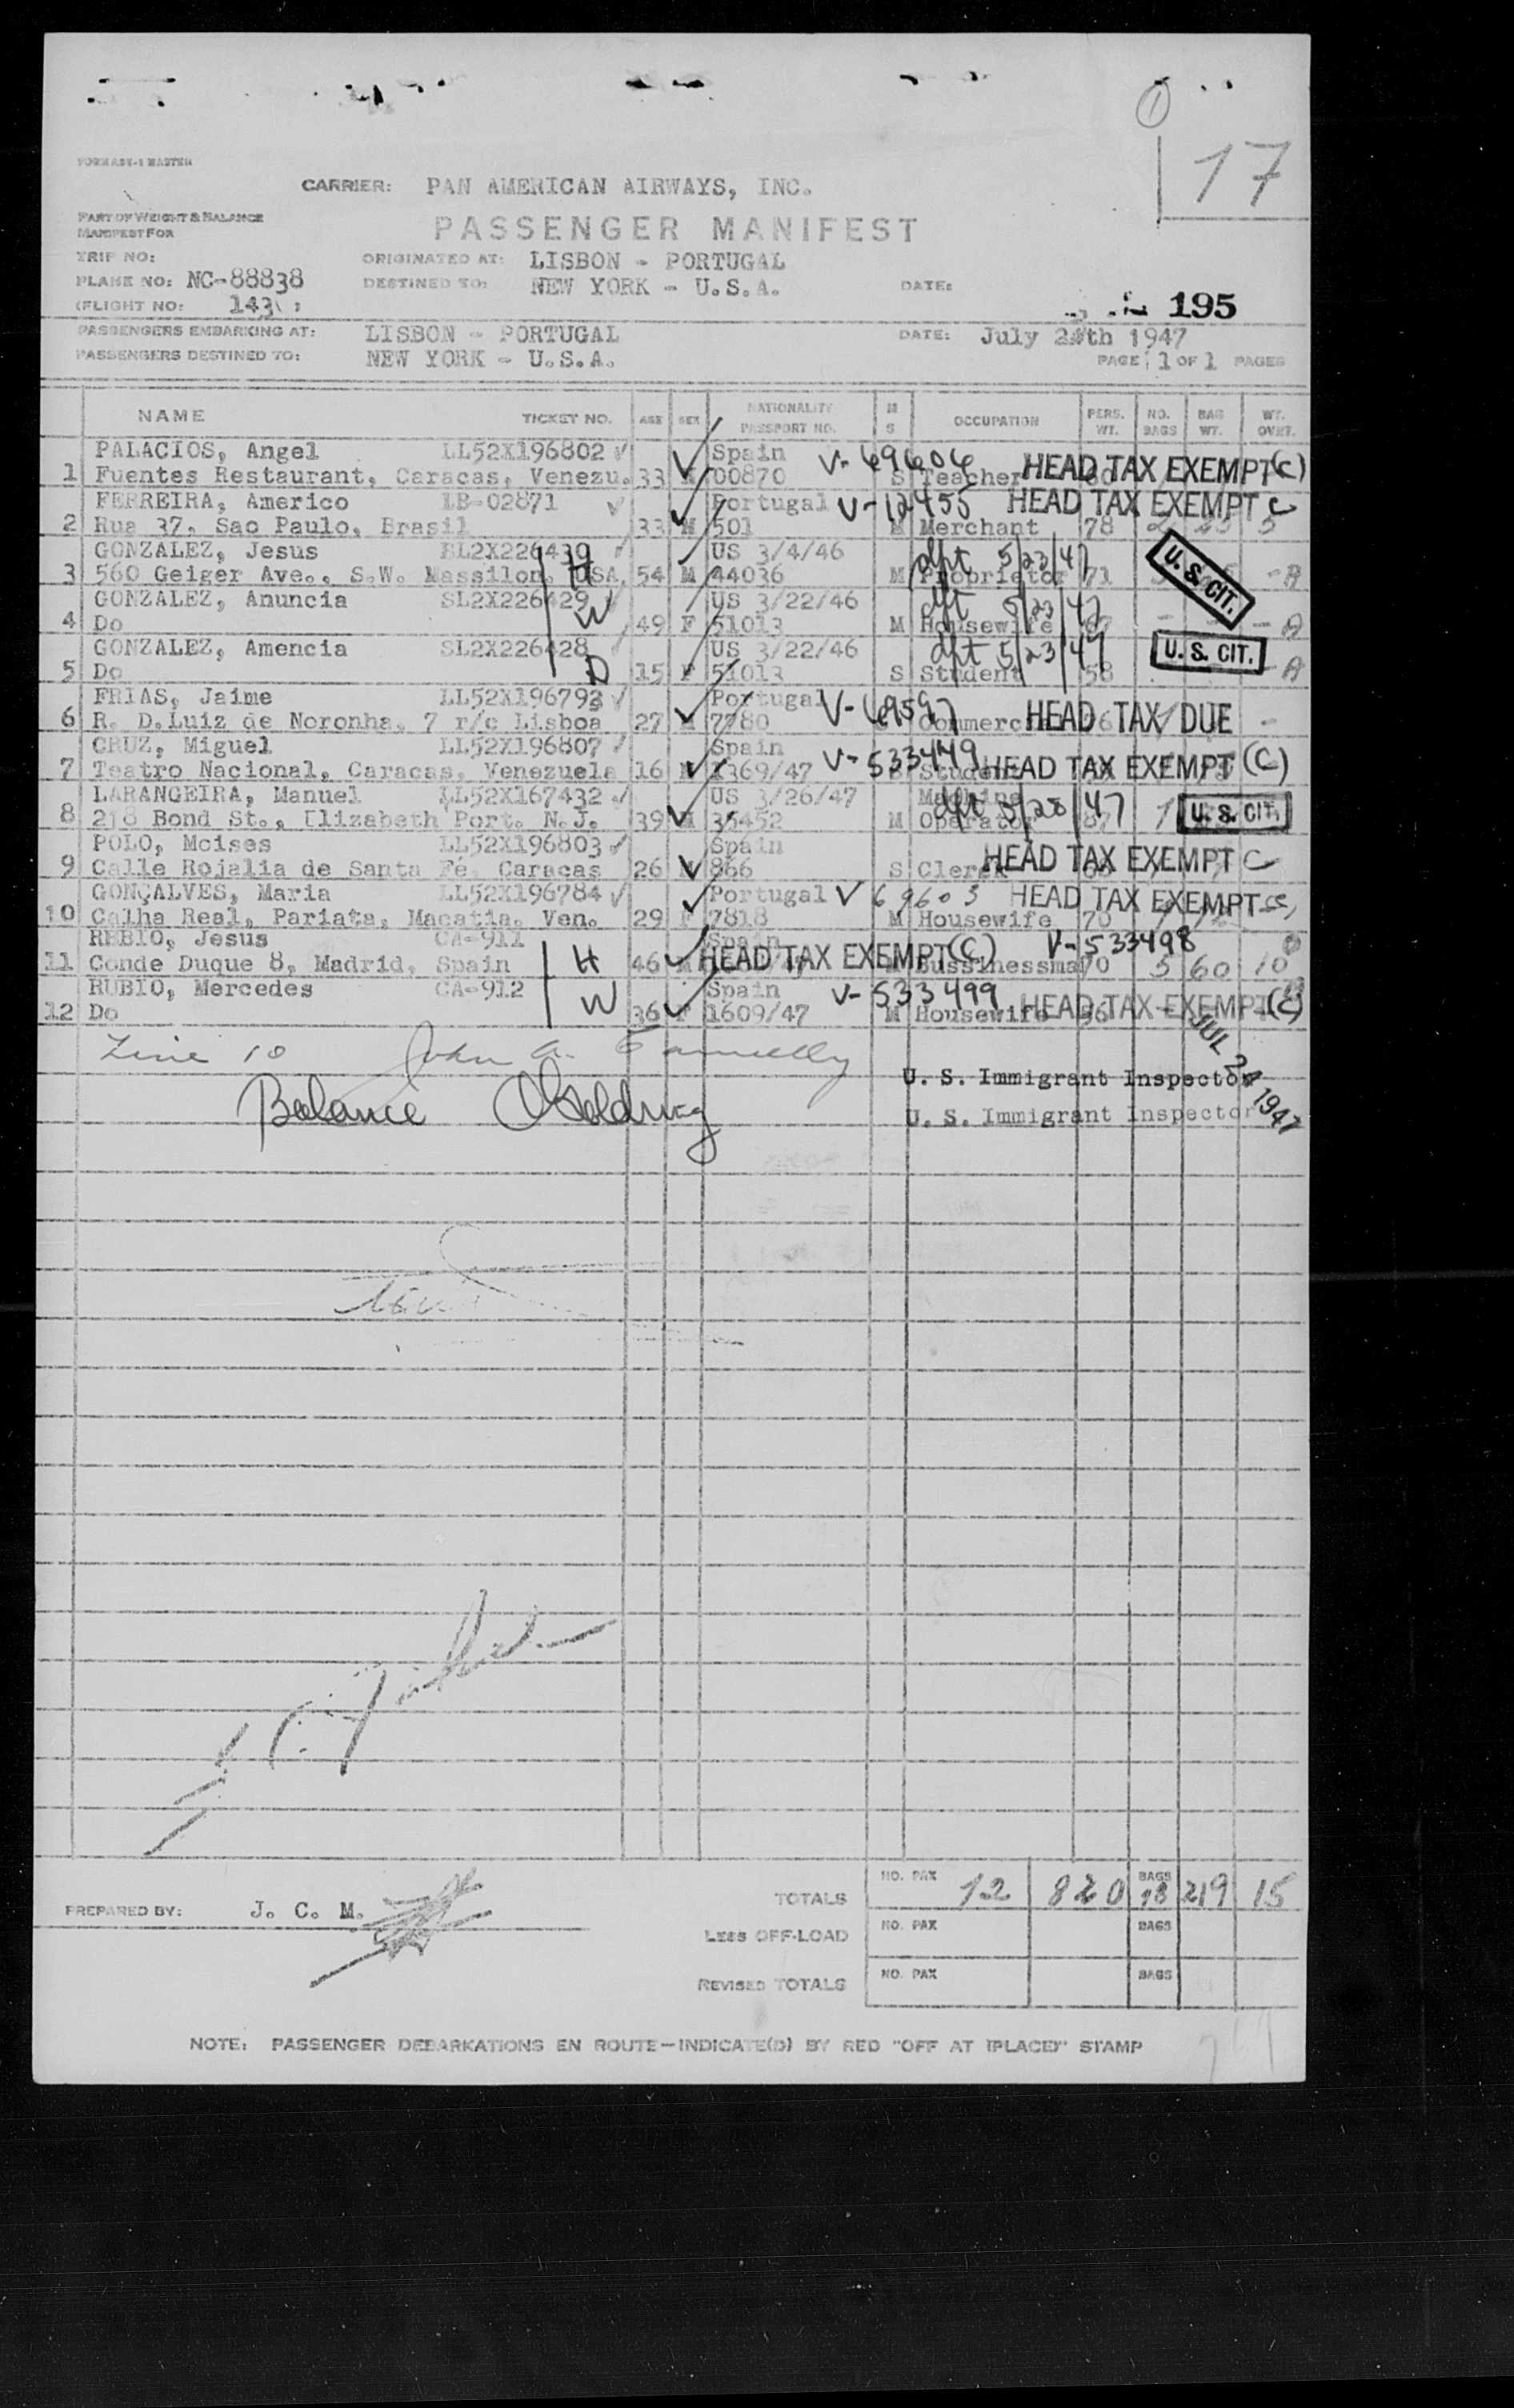 1
17
FORM ABW-1 MASTER
CARRIER: PAN AMERICAN AIRWAYS, INC.
PART OF WEIGHT & BALANCE
MANIFEST FOR
PASSENGER MANIFEST
TRIP NO: ORIGINATED AT: LISBON - PORTUGAL
PLANE NO: NC-88838 DESTINED TO: NEW YORK - U.S.A. DATE:
(FLIGHT NO: 143
195
PASSENGERS EMBARKING AT: LISBON - PORTUGAL DATE: July 24th 1947
PASSENGERS DESTINED TO: NEW YORK - U.S.A. PAGE 1 OF 1 PAGES
NAME TICKET NO. AGE SEX NATIONALITY PASSPORT NO. M S OCCUPATION PERS. WT. NO. BAGS BAG WT. WT. OVRT.
PALACIOS, Angel LL52X196802 Spain V-69606
1 Fuentes Restaurant, Caracas, Venezu. 33 00870 S Teacher HEAD TAX EXEMPT (C)
FERREIRA, Americo LB-02871 Portugal V-12455 HEAD TAX EXEMPT C
2 Rua 37, Sao Paulo, Brasil 33 M 501 M Merchant 78
GONZALEZ, Jesus SL2X226430 US 3/4/46 dpt 5/23/47
3 560 Geiger Ave., S.W. Massilon, USA. H 54 M 44036 M Proprietor 71 U. S. CIT. - A
GONZALEZ, Anuncia SL2X226429 US 3/22/46 dpt 5/23/47
4 Do W 49 F 51013 M Housewife - - A
GONZALEZ, Amencia SL2X226428 US 3/22/46 dpt 5/23/47 U. S. CIT.
5 Do D 15 F 51013 S Student 58 - A
FRIAS, Jaime LL52X196793 Portugal V-69597
6 R. D.Luiz de Noronha, 7 r/c Lisboa 27 M 7780 HEAD TAX DUE -
CRUZ, Miguel LL52X196807 Spain V-533449
7 Teatro Nacional, Caracas, Venezuela 16 M 1369/47 Student HEAD TAX EXEMPT (C)
LARANGEIRA, Manuel LL52X167432 US 3/26/47 Machine dpt 3/28/47
8 218 Bond St., Elizabeth Port. N.J. 39 M 35452 M Operator 87 1 U. S. CIT.
POLO, Moises LL52X196803 Spain
9 Calle Rojalia de Santa Fé, Caracas 26 M 866 S Clerk HEAD TAX EXEMPT C
GONÇALVES, Maria LL52X196784 Portugal V 69603 HEAD TAX EXEMPT
10 Calha Real, Pariata, Macatia, Ven. 29 F 7818 M Housewife 70
REBIO, Jesus CA-911 Spain V-533498
11 Conde Duque 8, Madrid, Spain H 46 M HEAD TAX EXEMPT (C) Bussinessman 70 3 60 10
RUBIO, Mercedes CA-912 Spain V-533499
12 Do W 36 F 1609/47 M Housewife 56 HEAD TAX EXEMPT (C)
Line 10 John A.
U. S. Immigrant Inspector
JUL 24 1947
Balance
U. S. Immigrant Inspector
PREPARED BY: J. C. M.
TOTALS NO. PAX 12 820 BAGS 18 219 15
LESS OFF-LOAD NO. PAX BAGS
REVISED TOTALS NO. PAX BAGS
NOTE: PASSENGER DEBARKATIONS EN ROUTE—INDICATE(D) BY RED "OFF AT (PLACE)" STAMP